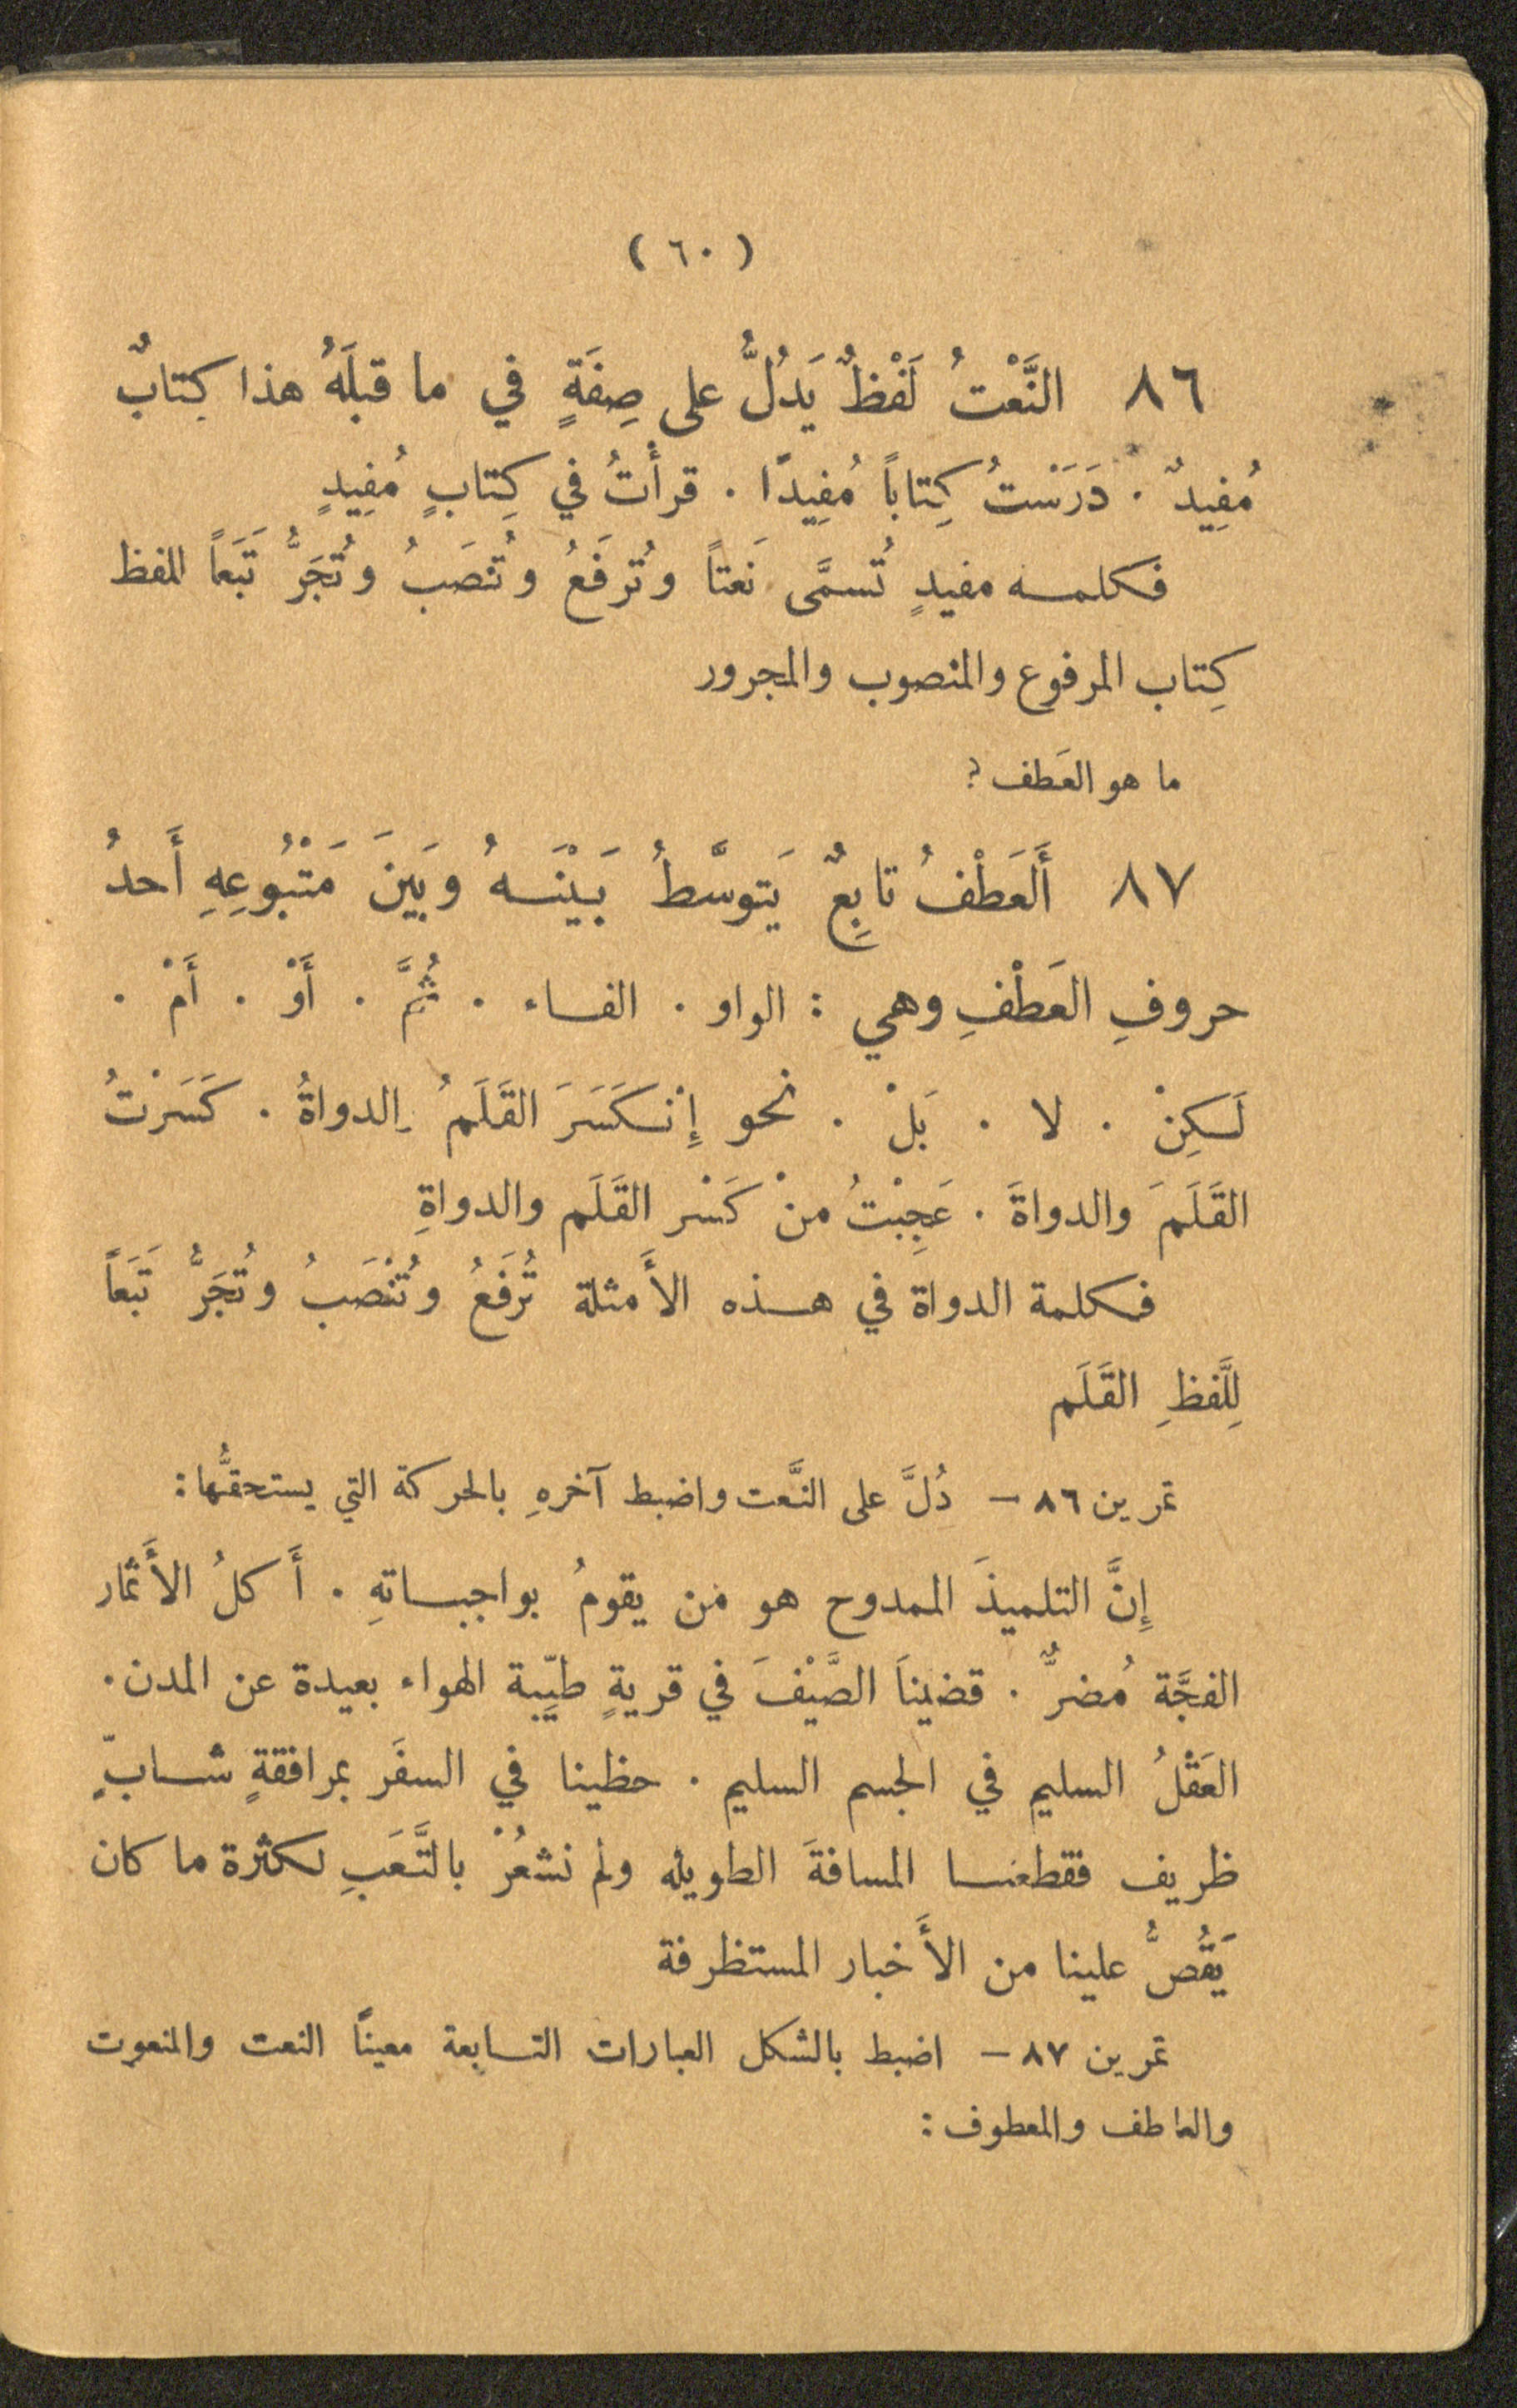 ( ٦٠ )
٨٦ النَّعْتُ لَفْظٌ يَدُلُّ على صِفَةٍ في ما قبلَهُ هذا كِتابٌ
مُفِيدٌ . دَرَسْتُ كِتاباً مُفِيدًا . قرأْتُ في كِتابٍ مُفِيدٍ
فكلمه مفيدٍ تُسمَّى نَعتاً وتُرفَعُ وتُنصَبُ وتُجَرُّ تَبَعاً للفظ
كِتاب المرفوع والمنصوب والمجرور
ما هو العَطف ؟
٨٧ أَلعَطْفُ تابِعٌ يَتوسَّطُ بَيْنَهُ وبَينَ مَتْبُوعِهِ أَحدُ
حروفِ العَطْفِ وهي : الواو . الفاء . ثُمَّ . أَوْ . أَمْ .
لَكِنْ . لا . بَلْ . نحو إِنْكَسَرَ القَلَمُ والدواةُ . كَسَرْتُ
القَلَمَ والدواةَ . عَجِبْتُ منْ كَسْر القَلَم والدواةِ
فكلمة الدواة في هذه الأَمثلة تُرفَعُ وتُنْصَبُ وتُجَرُّ تَبَعاً
لِلَّفظِ القَلَم
تمرين ٨٦ – دُلَّ على النَّعت واضبط آخرهِ بالحركة التي يستحقُّها :
إِنَّ التلميذَ الممدوح هو من يقومُ بواجباتهِ . أَكلُ الأَثمار
الفجَّة مُضرٌّ . قضيناَ الصَّيْفَ في قريةٍ طيّبة الهواء بعيدة عن المدن .
العَقْلُ السليم في الجسم السليم . حظينا في السفَر بمرافقةٍ شابٍّ
ظريف فقطعنا المسافةَ الطويله ولم نشعُرْ بالتَّعَبِ لكثرة ما كان
يَقُصُّ علينا من الأَخبار المستظرفة
تمرين ٨٧ – اضبط بالشكل العبارات التابعة معيناً النعت والمنعوت
والعاطف والمعطوف :